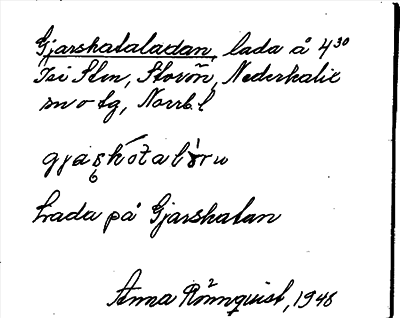 Gjarshataladan, lada å 4³⁰
Isi Sten, Storön, Nederkalix
sn o tg, Norrb. l
Lada på Gjarshatan
Anna Rönnquist, 1948